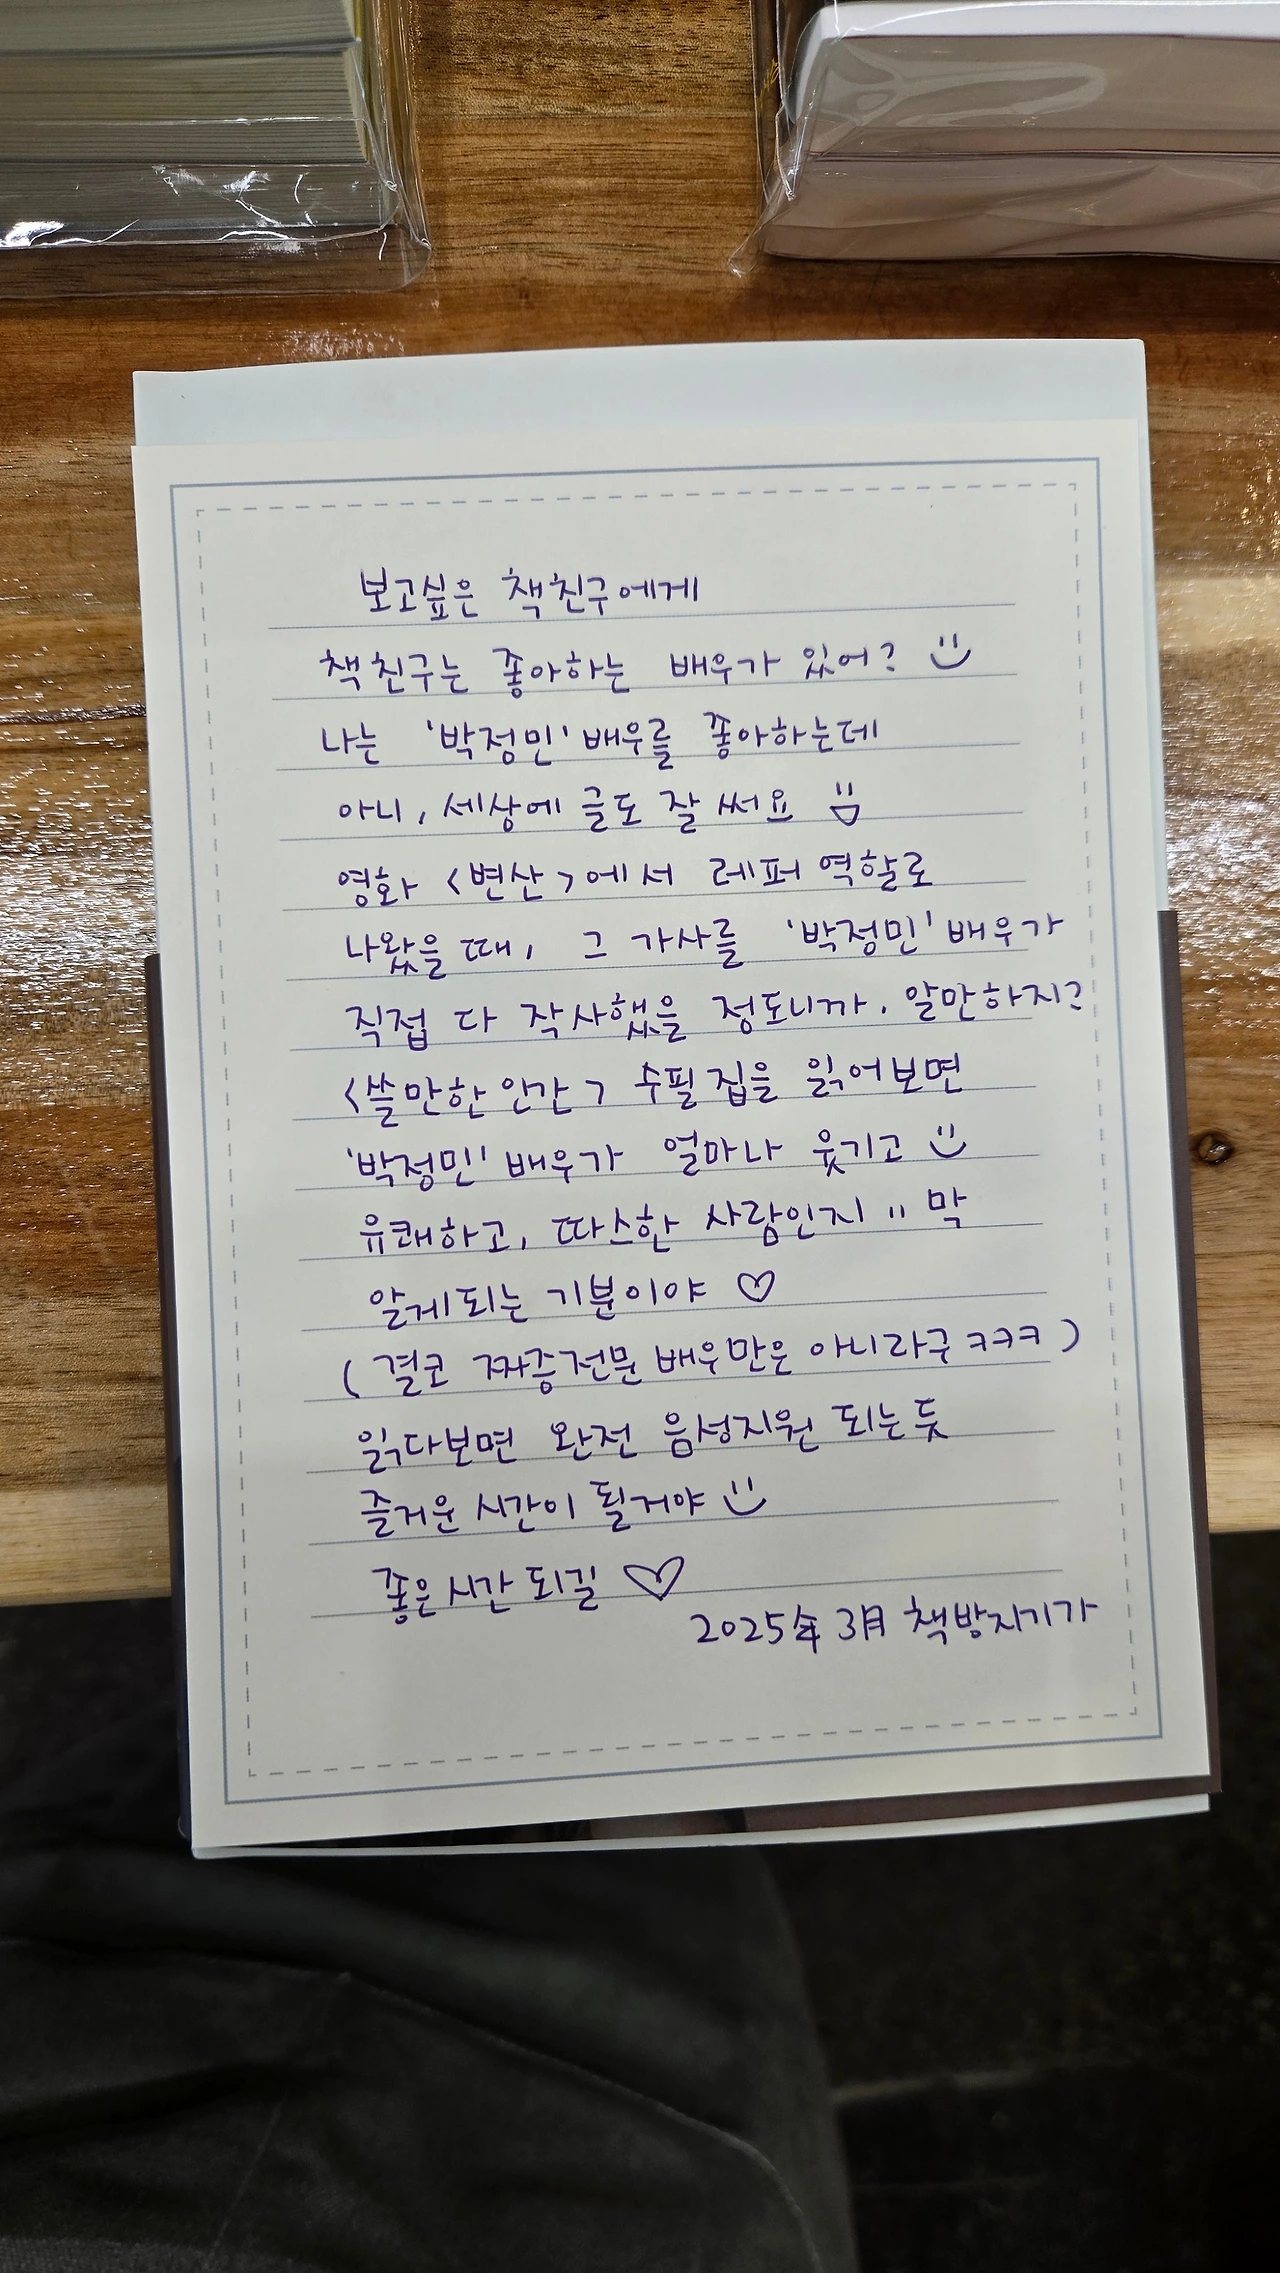 보고싶은 책친구에게
책친구는 좋아하는 배우가 있어?
나는 '박정민' 배우를 좋아하는데
아니, 세상에 글도 잘 써요
영화 <변산>에서 레퍼 역할로
나왔을 때, 그 가사를 '박정민' 배우가
직접 다 작사했을 정도니까. 알만하지?
<쓸만한 인간> 수필집을 읽어보면
'박정민' 배우가 얼마나 웃기고
유쾌하고, 따스한 사람인지 막
알게되는 기분이야 ♡
(결코 짜증전문 배우만은 아니라구 ㅋㅋㅋ)
읽다보면 완전 음성지원 되는듯
즐거운 시간이 될거야
좋은 시간 되길 ♡
2025年 3月 책방지기가